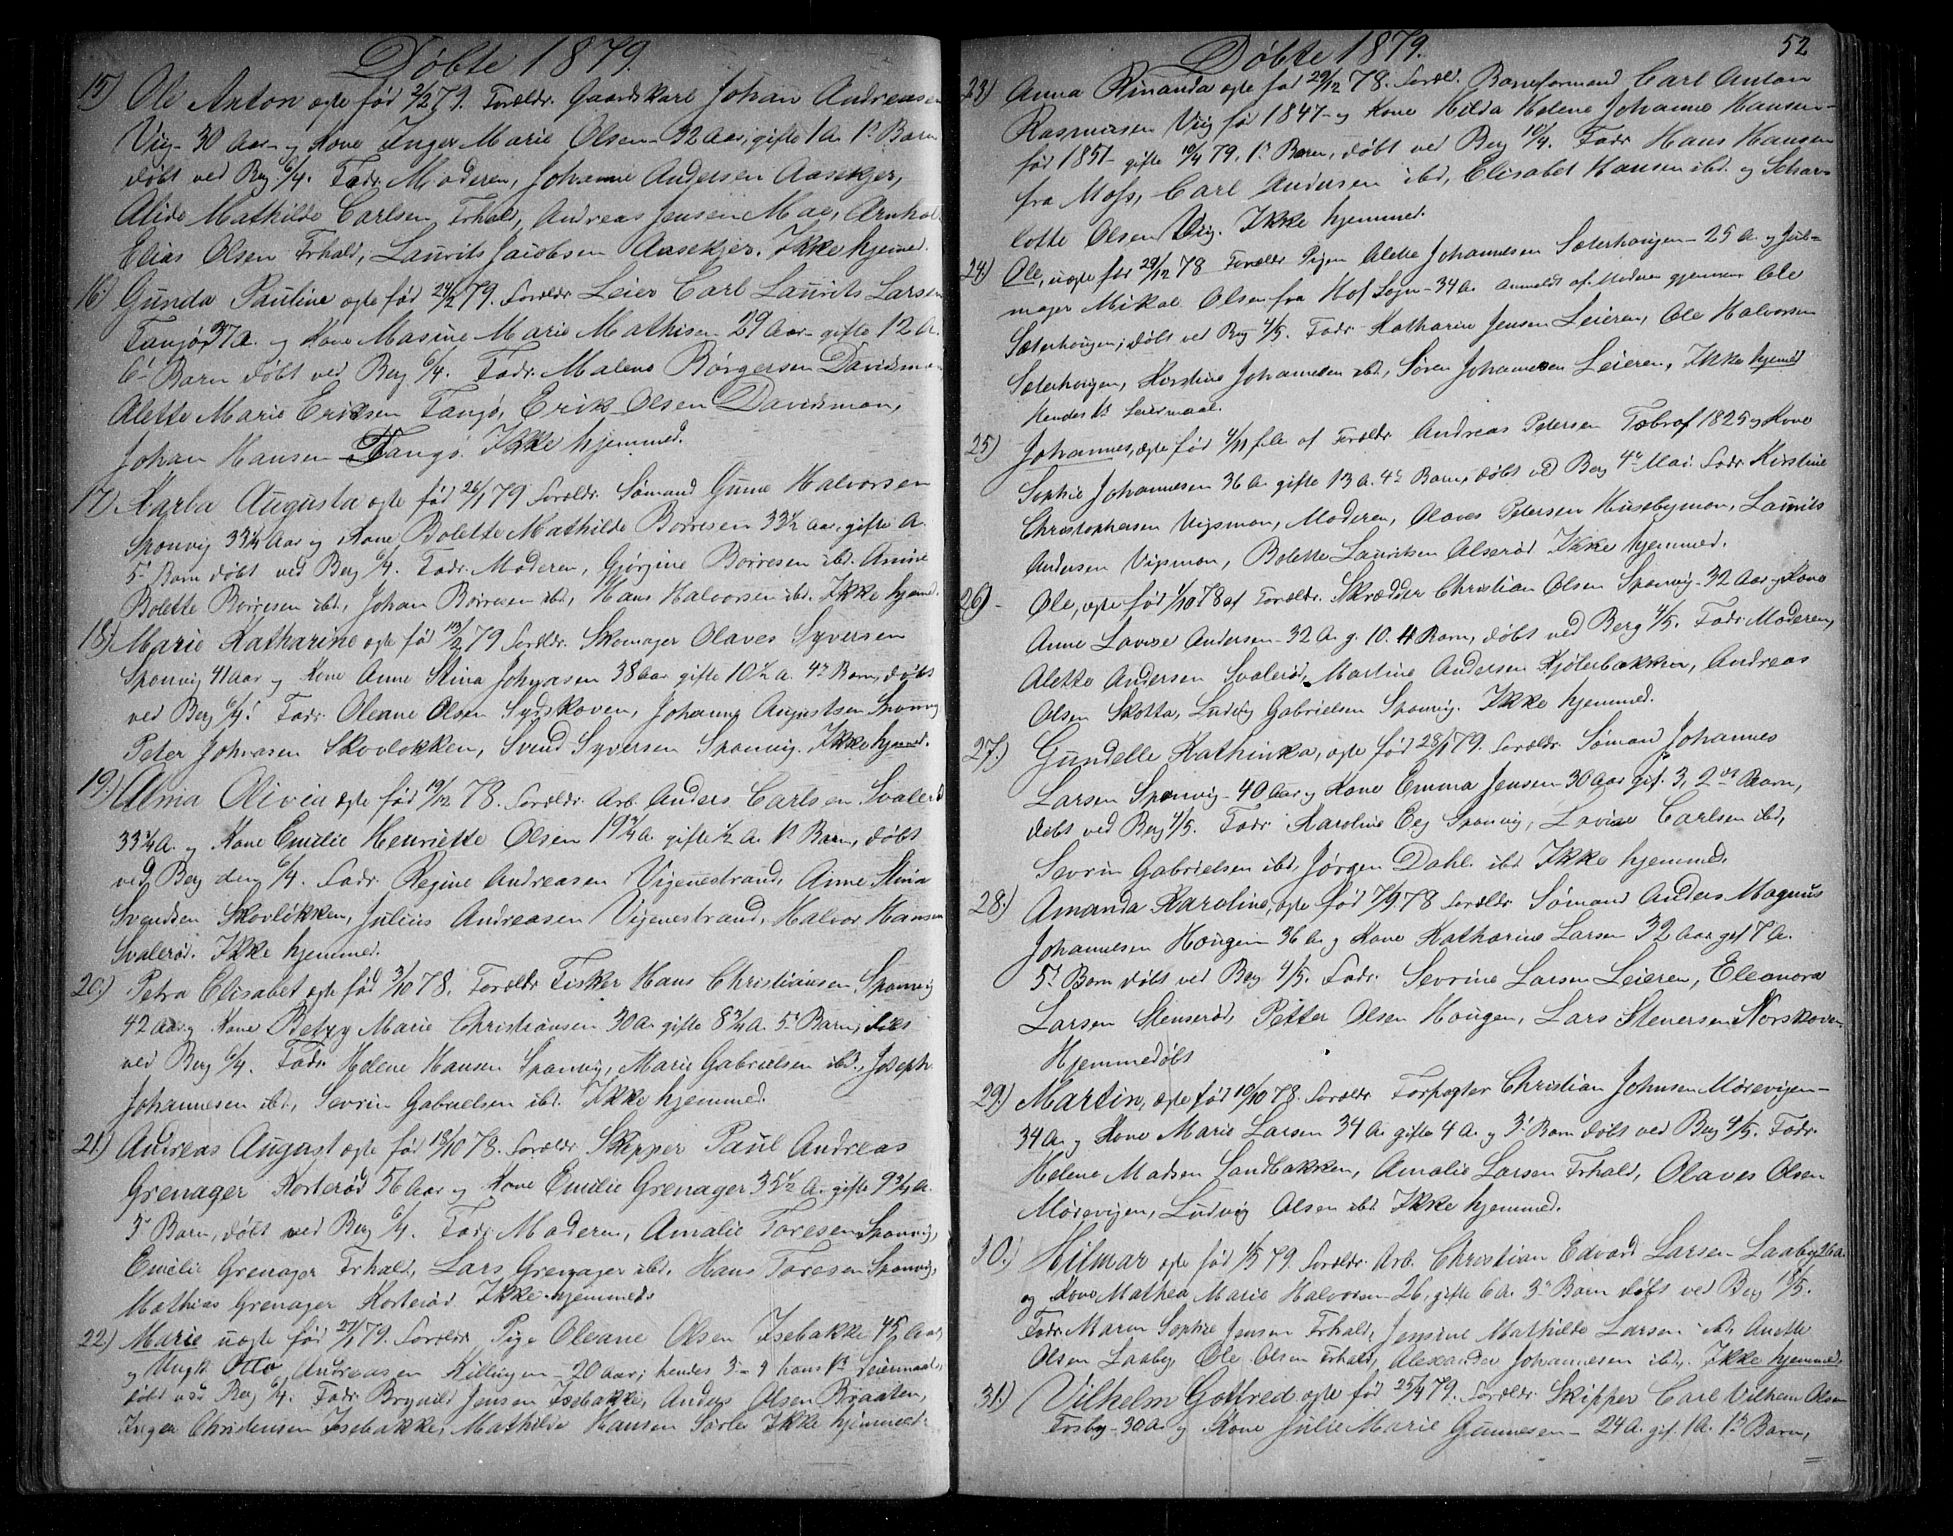 Døbte 1879.
15) Ole Anton ægte fød 2/2 79. Forældr. Gaardskarl Johan Andreasen
Viig - 30 Aar - og Kone Inger Marie Olsen - 32 Aar, gifte 1 A. 1st Barn
døbt ved Berg 6/4. Fadr. Moderen, Johanne Andersen Aasekjer,
Alide Mathilde Carlsen Frhald, Andreas Jensen
Elias Olsen Frhald, Laurits Jacobsen Aasekjer. Ikke hjemmed.
16) Gunda Pauline ægte fød 24/2 79. Forældr. Leier Carl Laurits Larsen
Tangø 37 A. og Kone Masine Marie Mathisen 29 Aar - gifte 12 A.
6t Barn døbt ved Berg 6/4. Fadr. Malene Børgersen Davidsmon
Alette Marie Eriksen Tangø, Erik Olsen Davidsmon,
Johan Hansen Tangø. Ikke hjemmed.
17) Karla Augusta ægte fød 26/1 79 Forældr. Sømand Gune Halvorsen
Sponvig 33 1/4 Aar og Kone Bolette Mathilde Børresen 33 1/2 aar, gifte A.
5t Barn døbt ved Berg 6/4. Fadr. Moderen, Gjørgine Børresen ibd. Amine
Bolette Børresen ibd, Johan Børresen ibd, Hans Halvorsen ibd. Ikke hjemd.
18) Marie Katharine ægte fød 13/2 79 Forældr. Skomager Olaves Syversen
Sponvig 41 aar og Kone Anne Stina Johnsen 38 aar gifte 10 1/2 A. 4t Barn, døbt
ved Berg 6/4. Fadr. Oleane Olsen Sydskoven, Johanne Augustsen Sponvig
Peter Johnsen Skovløkken, Svend Syversen Sponvig. Ikke hjemd.
19) Alma Olivia ægte fød 19/12 78. Forældr. Arb. Anders Carlsen Svalerød
33 3/4 A. og Kone Emilie Henriette Olsen 19 3/4 A. gifte 1/2 A. 1t Barn, døbt
ved Berg den 6/4. Fadr. Regine Andreasen Vigenestrand, Anne Stina
Svendsen Skovløkken, Julius Andreasen Vigenestrand, Halvor Hansen
Svalerød. Ikke hjemmed.
20) Petra Elisabet ægte fød 3/10 78. Forældr. Fisker Hans Christiansen Sponvig
42 aar og Kone Betzy Marie Christiansen 30 A. gifte 8 3/4 A. 5t Barn, døbt
ved Berg 6/4. Fadr. Helene Hansen Sponvig, Marie Gabrielsen ibd., Joseph
Johannesen ibd, Sevrin Gabrielsen ibd. Ikke hjemmed.
21) Andreas August ægte fød 18/10 78. Forældr. Skipper Paul Andreas
Grenager Korterød 56 Aar og Kone Emilie Grenager 35 1/2 A. gifte 9 3/4 A.
5t Barn, døbt ved Berg 6/4. Fadr. Moderen, Amalie Toresen Sponvig,
Emilie Grenager Frhald, Lars Grenager ibd. Hans Toresen Sponvig,
Mathias Grenager Korterød. Ikke hjemmed.
22) Marie uægte fød 27/1 79. Forældr. Pige Oleane Olsen Isebakke 45 Aar
og Ungk. Otto Andreasen Killingen - 20 aar; hendes 3 - og hans 1t Leiermaal,
døbt ved Berg 6/4. Fadr. Brynild Jensen Isebakke, Anders Olsen Braaten,
Inger Christensen Isebakke, Mathilde Hansen Sørle Ikke hjemmed.
Døbte 1879.
52
23) Anna Rinanda ægte fød 29/12 78. Foræld. Børseformand Carl Anton
Rasmusen Viig fød 1847 - og Kone Hilda Helene Johanne Hansen -
født 1851 - gifte 10/4 79. 1t Barn, døbt ved Berg 10/4. Fadr. Hans Hansen
fra Moss, Carl Andersen ibd, Elisabet Hansen ibd. og Schar-
lotte Olsen Viig. Ikke hjemmed.
24) Ole, uægte født 29/12 78 Forældr Pigen Alette Johannesen Sæterhougen - 25 A. og
mager Mikal Olsen fra Hof Sogn - 34 A. Anmeldt af Moderen gjennem Ole
Sæterhougen; døbt ved Berg 4/5. Fadr. Katharine Jensen Leieren, Ole Halvorsen
Sæterhougen, Kirstine Johannesen ibd., Søren Johannesen Leieren, Ikke hjemmed
Hendes 1t Leiermaal.
25) Johannes, ægte fød 4/11 f.A. af Forældr. Andreas Petersen født 1825 og Kone
Sophie Johannesen 36 A. gifte 13 A. 4t Barn, døbt ved Berg 4de Mai. Fadr. Kirstine
Christophersen Vigsmon, Moderen, Olaves Petersen Husebymon, Laurits
Andersen Vigsmon, Bolette Lauritsen Alserød Ikke hjemmed.
26) - Ole, ægte fød 1/10 78 af Forældr. Skrædder Christian Olsen Sponvig - 32 Aar og Kone
Anne Lovise Andersen - 32 A. g. 10. 4 Barn, døbt ved Berg 4/5. Fadr. Moderen,
Alette Andersen Svalerød, Martine Andersen Kjølerbakken, Andreas
Olsen Skotta, Ludvig Gabrielsen Sponvig. Ikke hjemmed.
27) Gundelle Kathinka, ægte fød 28/1 79. Forældr. Sømand Johannes
Larsen Sponvig - 40 aar og Kone Emma Jensen 30 aar gif. 3, 2det Barn,
døbt ved Berg 4/5. Fadr. Karoline Eeg Sponvig, Lovise Carlsen ibd,
Sevrin Gabrielsen ibd, Jørgen Dahl ibd. Ikke hjemmed.
28) Amanda Karoline, ægte fød 7/9 78 Forældr. Sømand Anders Magnus
Johannesen Hougen 36 A. og Kone Katharine Larsen 32 Aar gif 7 A.
5t Barn døbt ved Berg 4/5. Fadr. Sevrine Larsen Leieren, Eleonora
Larsen Stenserød, Petter Olsen Hougen, Lars Stenersen Norskoven
Hjemmedøbt
29) Martin, ægte fød 10/10 78. Forældr. Forpagter Christian Johnsen Mørevigen -
34 A. og Kone Marie Larsen 34 A. gifte 4 A. og 3t Barn døbt ved Berg 4/5. Fadr.
Helene Madsen Sandbakken, Amalie Larsen Frhald, Olaves Olsen
Mørevigen, Ludvig Olsen ibd. Ikke hjemmed.
30) Hilmar ægte fød 1/3 79. Forældr. Arb. Christian Edvard Larsen Laaby 26 A.
og Kone Mathea Marie Halvorsen - 26, gifte 6 A. 3t Barn døbt ved Berg 18/5.
Fadr. Maren Sophie Jensen Frhald, Jensine Mathilde Larsen ibd. Anette
Olsen Laaby, Ole Olsen Frhald, Alexander Johannesen ibd. Ikke hjemmed.
31) Vilhelm Gotfred ægte fød 25/4 79. Forældr. Skipper Carl Vilhelm Olsen
Torsby - 30 A. og Kone Julie Marie Gunnesen - 24 A. gif. 1 A. 1t Barn,